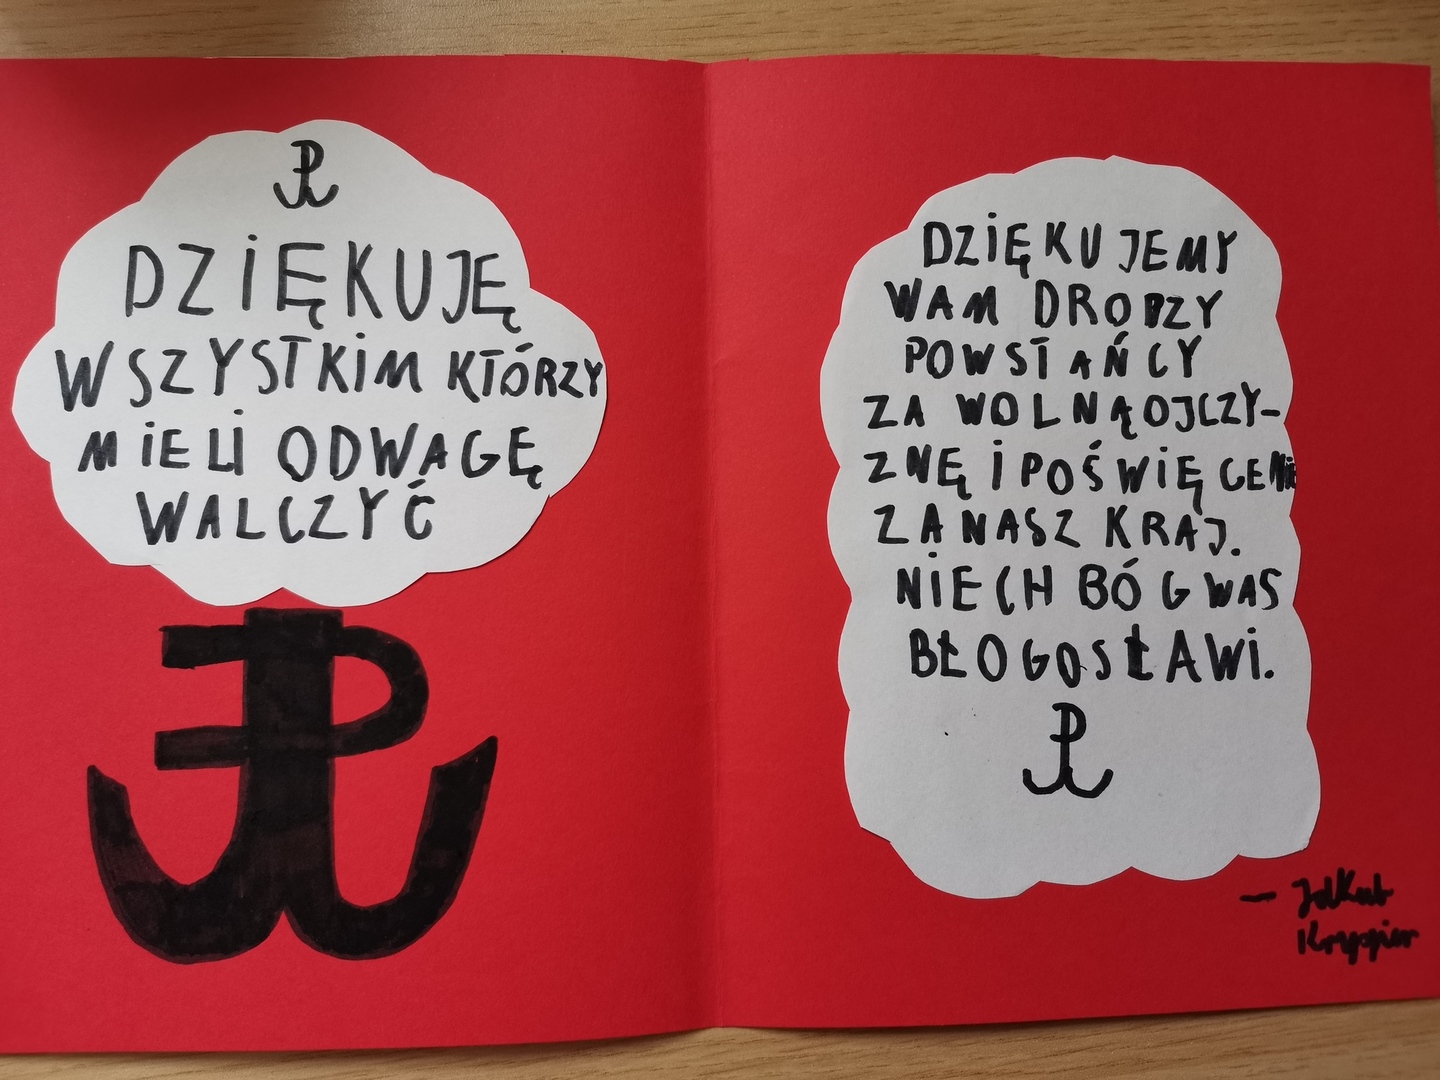 DZIĘKUJĘ
WSZYSTKIM KTÓRZY
MIELI ODWAGĘ
WALCZYĆ
DZIĘKUJEMY
WAM DRODZY
POWSTAŃCY
ZA WOLNĄ OJCZY-
ZNĘ I POŚWIĘCENIE
ZA NASZ KRAJ.
NIECH BÓG WAS
BŁOGOSŁAWI.
— Jakub